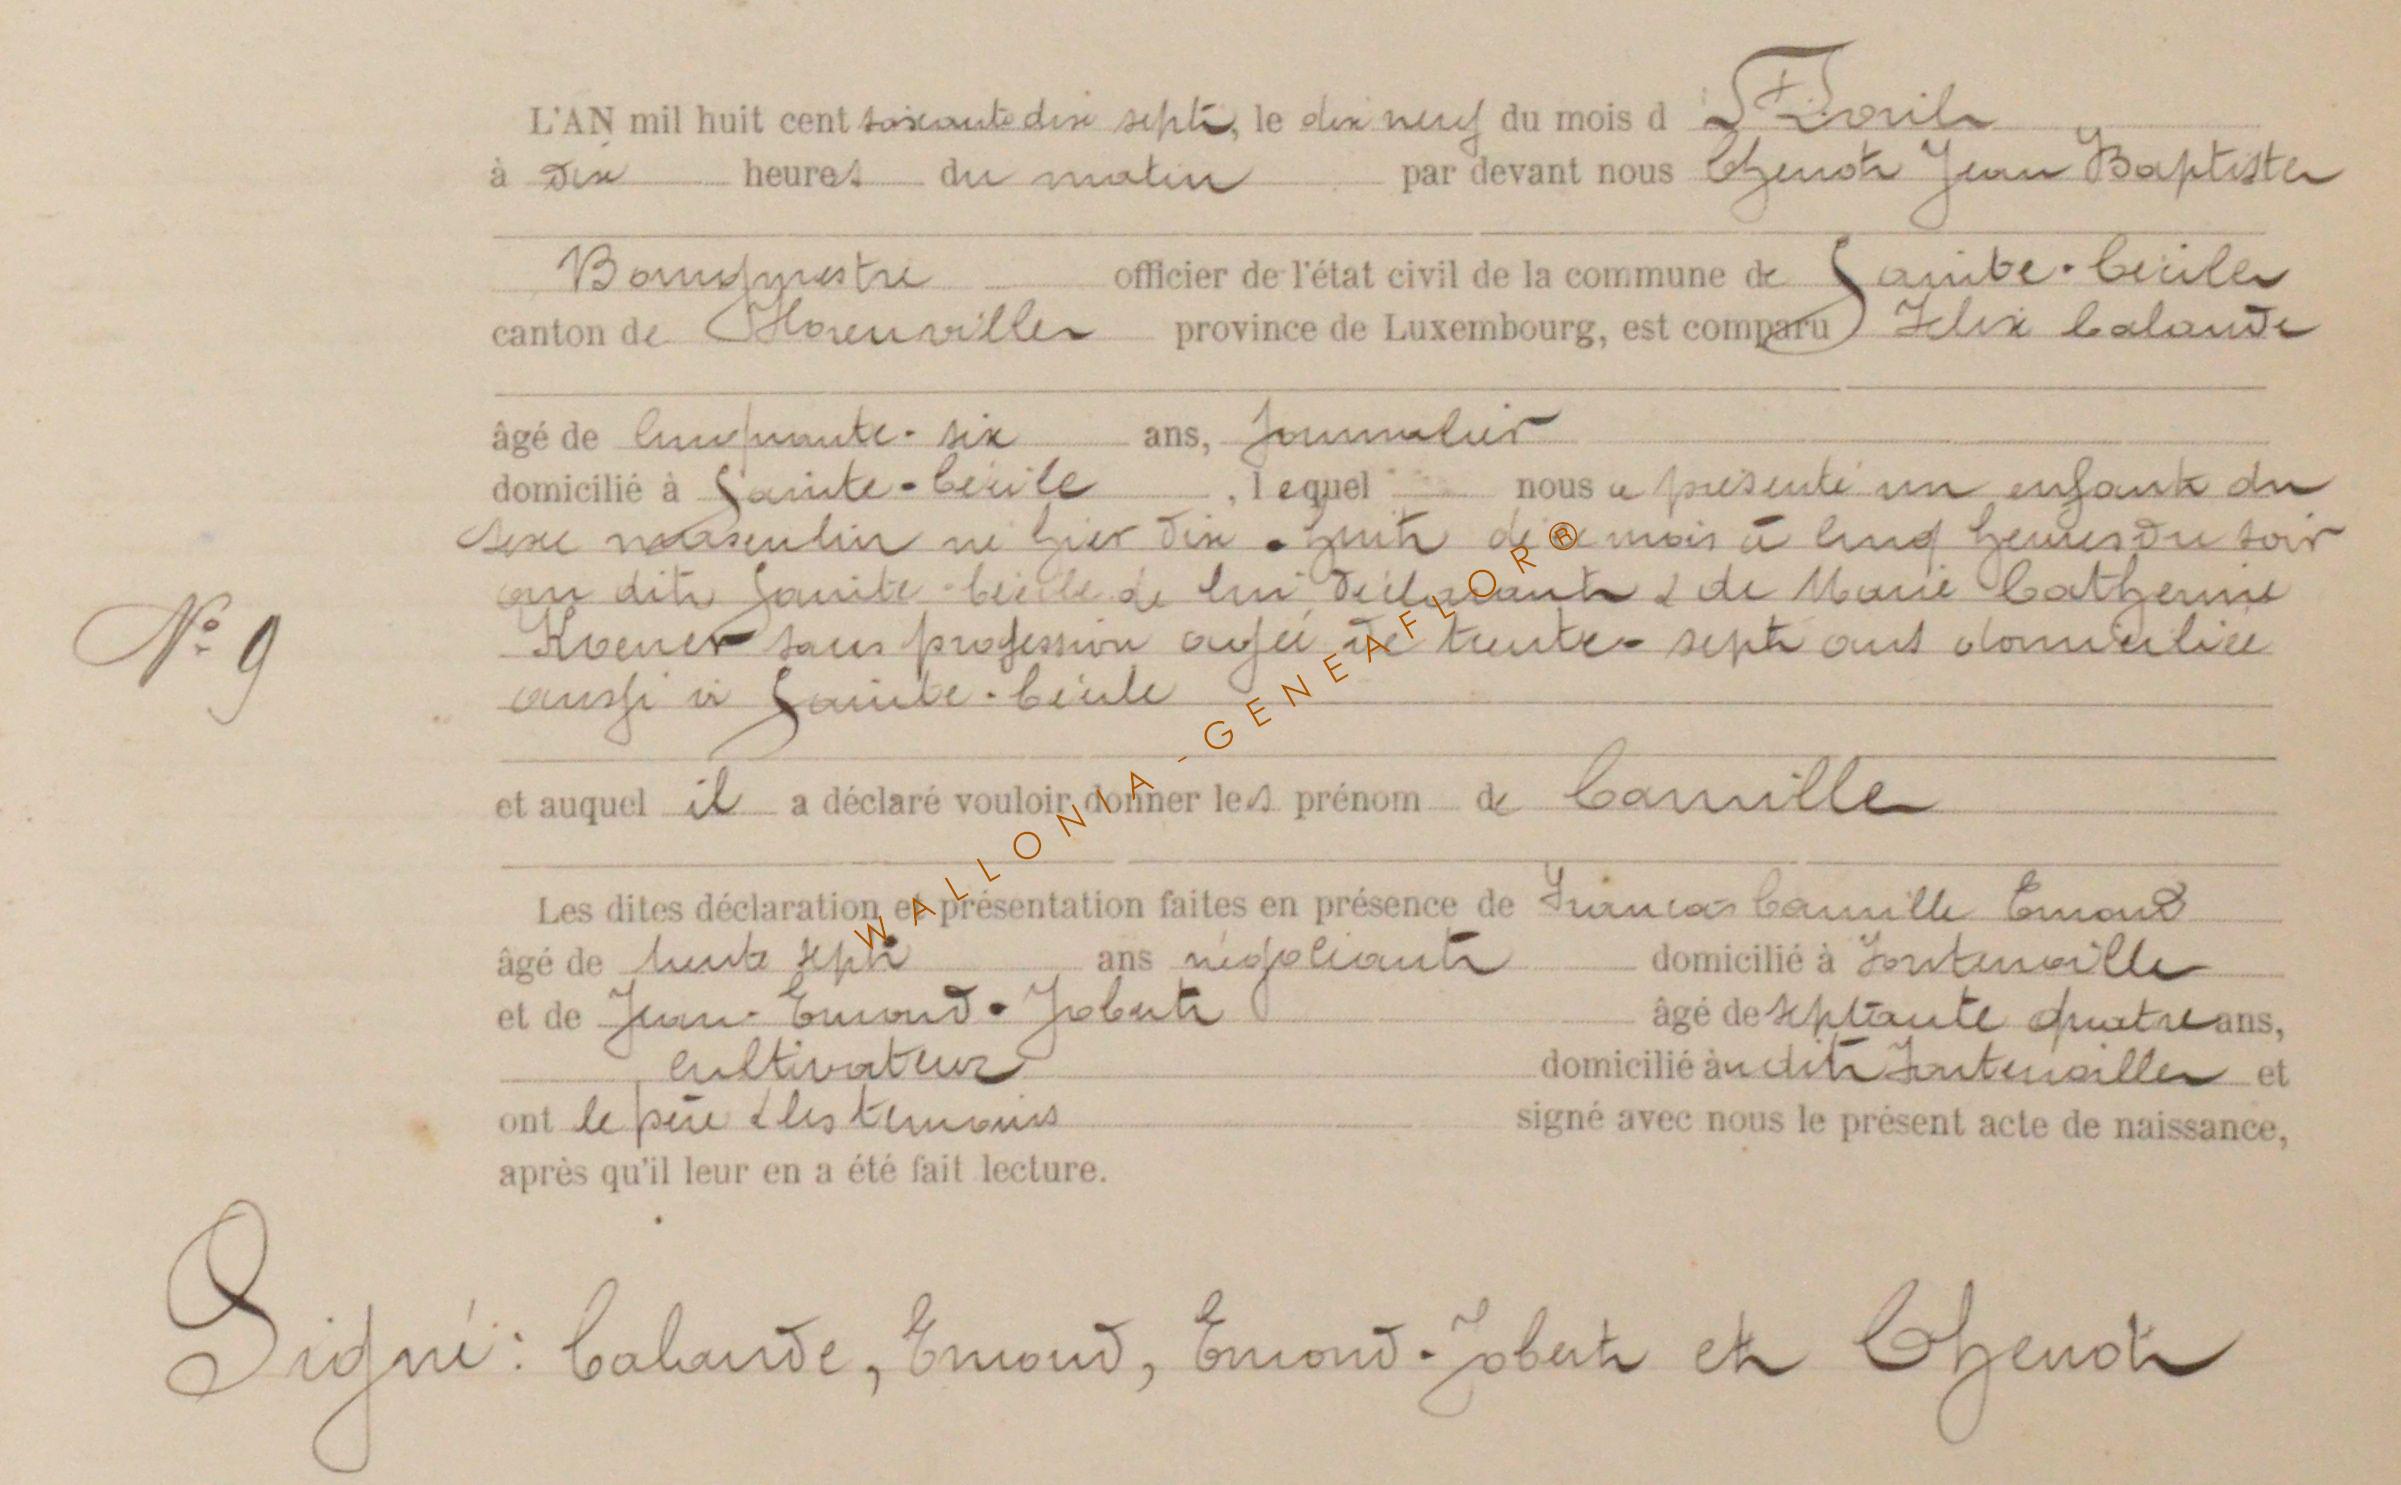 L'AN mil huit cent soixante dix sept, le dix neuf du mois d'Avril
à dix heures du matin par devant nous Thenot Jean Baptiste
Bourgmestre officier de l'état civil de la commune de Sainte-Cécile
canton de Florenville province de Luxembourg, est comparu Felix Calande
âgé de cinquante-six ans, journalier
domicilié à Sainte-Cécile, lequel nous a présenté un enfant du
sexe masculin né hier dix-huit de ce mois à cinq heures du soir
au dit Sainte-Cécile de lui déclarant & de Marie Catherine
Kvener sans profession agée de trente-sept ans domiciliée
N° 9
aussi à Sainte-Cécile
et auquel il a déclaré vouloir donner les prénom de Camille
Les dites déclaration et présentation faites en présence de Francois Camille Emond
âgé de trente sept ans négociant domicilié à Fontenoille
et de Jean-Emond-Jobert âgé de septante quatre ans,
cultivateur domicilié àu dit Fontenoille et
ont le père & les témoins signé avec nous le présent acte de naissance,
après qu'il leur en a été fait lecture.
Signé: Calande, Emond, Emond-Jobert et Thenot
WALLONIA-GENEAFLOR®